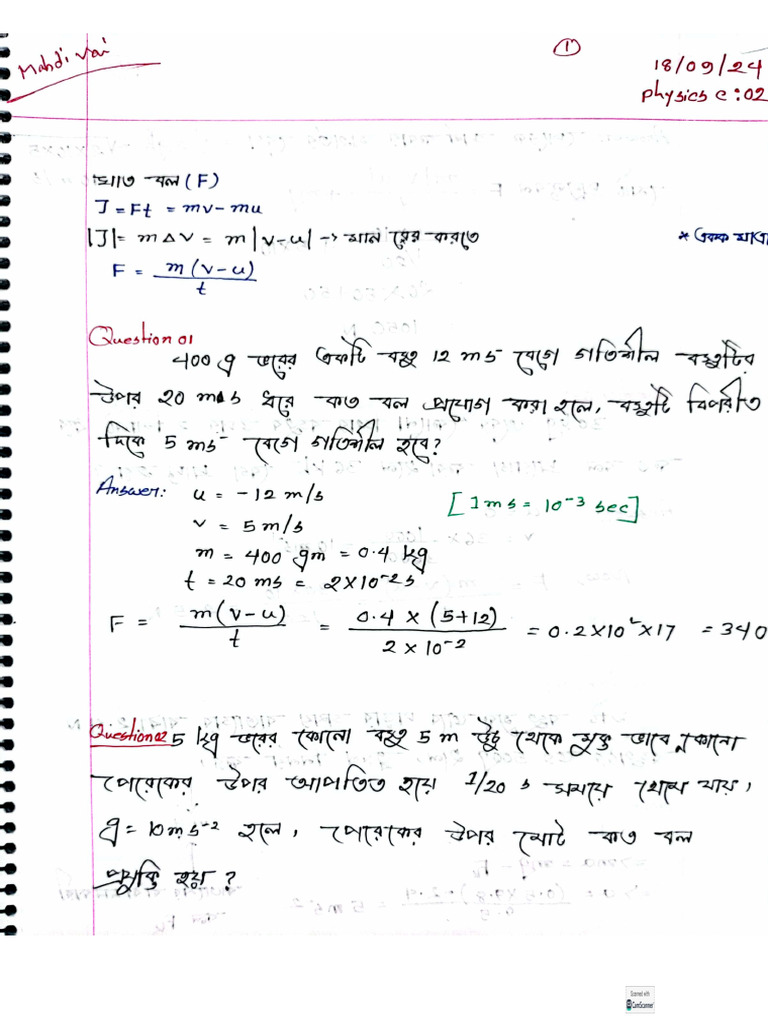 Mahdi Vai
①
18/09/24
physics c:02
ঘাত বল (F)
J = Ft = mv - mu
|J| = m∆v = m|v-u| → মান বের করতে
* একক মাত্রা
F = m(v-u) / t
Question 01
400 g ভরের একটি বস্তু 12 ms⁻ বেগে গতিশীল বস্তুটির
উপর 20 ms ধরে কত বল প্রয়োগ করা হলে, বস্তুটি বিপরীত
দিকে 5 ms⁻ বেগে গতিশীল হবে?
Answer: u = -12 m/s
[1ms = 10⁻³ sec]
v = 5 m/s
m = 400 gm = 0.4 kg
t = 20 ms = 2×10⁻² s
F = m(v-u) / t = 0.4 × (5+12) / 2 × 10⁻² = 0.2×10²×17 = 340
Question 02 5 kg ভরের কোনো বস্তু 5 m উঁচু থেকে মুক্ত ভাবে কোনো
পেরেকের উপর আপতিত হয়ে 1/20 s সময়ে থেমে যায়,
g = 10 ms⁻² হলে, পেরেকের উপর মোট কত বল
প্রযুক্ত হয়?
Scanned with
CamScanner